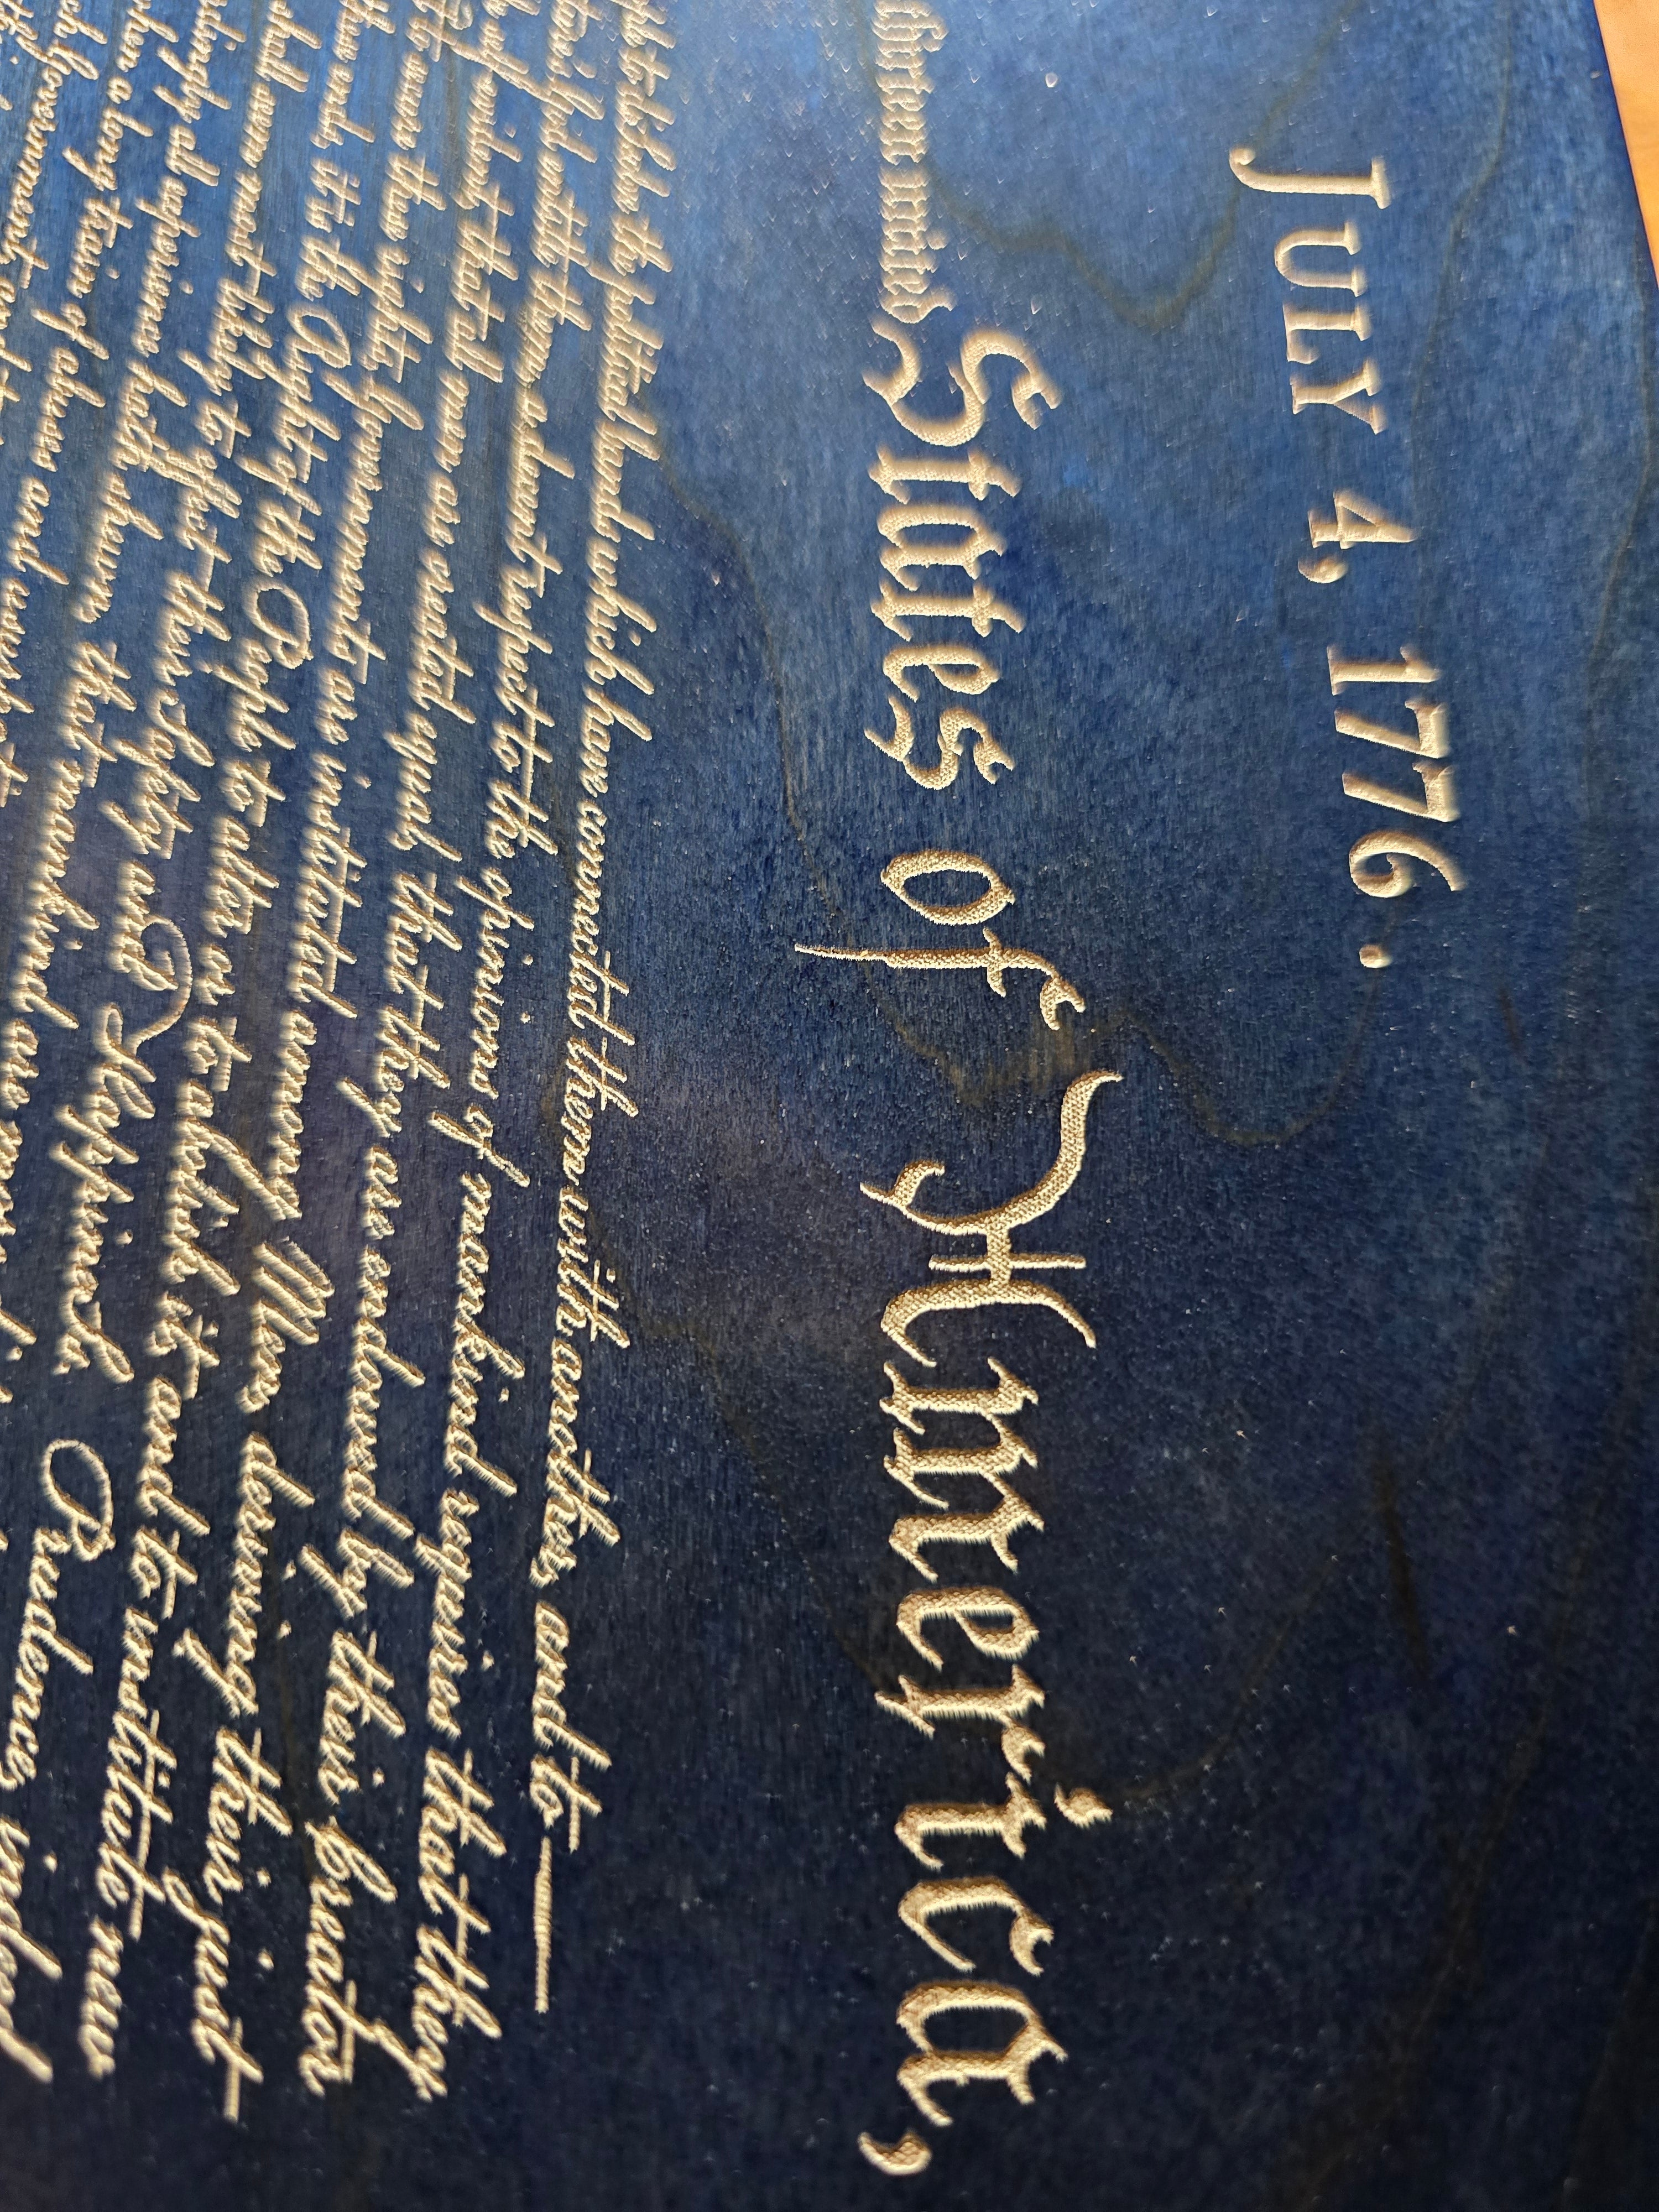 JULY 4, 1776.
thirteen united States of America,
to dissolve the political bands which have connected them with another, and to —
God entitle them, a decent respect to the opinions of mankind requires that they
evident, that all men are created equal, that they are endowed by their Creator
secure these rights, Governments are instituted among Men, deriving their just
these ends, it is the Right of the People to alter or to abolish it, and to institute new
shall seem most likely to effect their Safety and Happiness. Prudence, indeed
all experience hath shewn, that mankind are more
when a long train of abuses and
such Government,